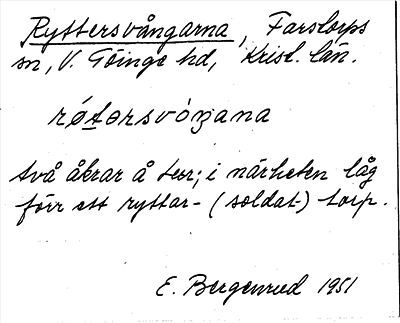 Ryttersvångarna, Farstorps
sn, V. Göinge hd, Krist. län.
røtersvóŋana
två åkrar å terr; i närheten låg
förr ett ryttar- (soldat-) torp.
E. Bergenrud 1951